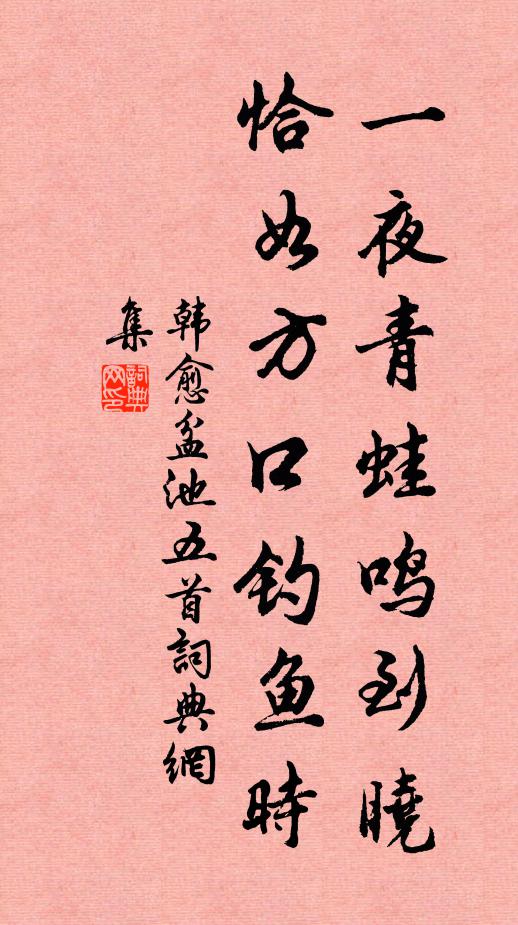 一夜青蛙鸣到曉
恰如方口钓鱼時
韩愈盆池五首詞典網
集
詞典
网印